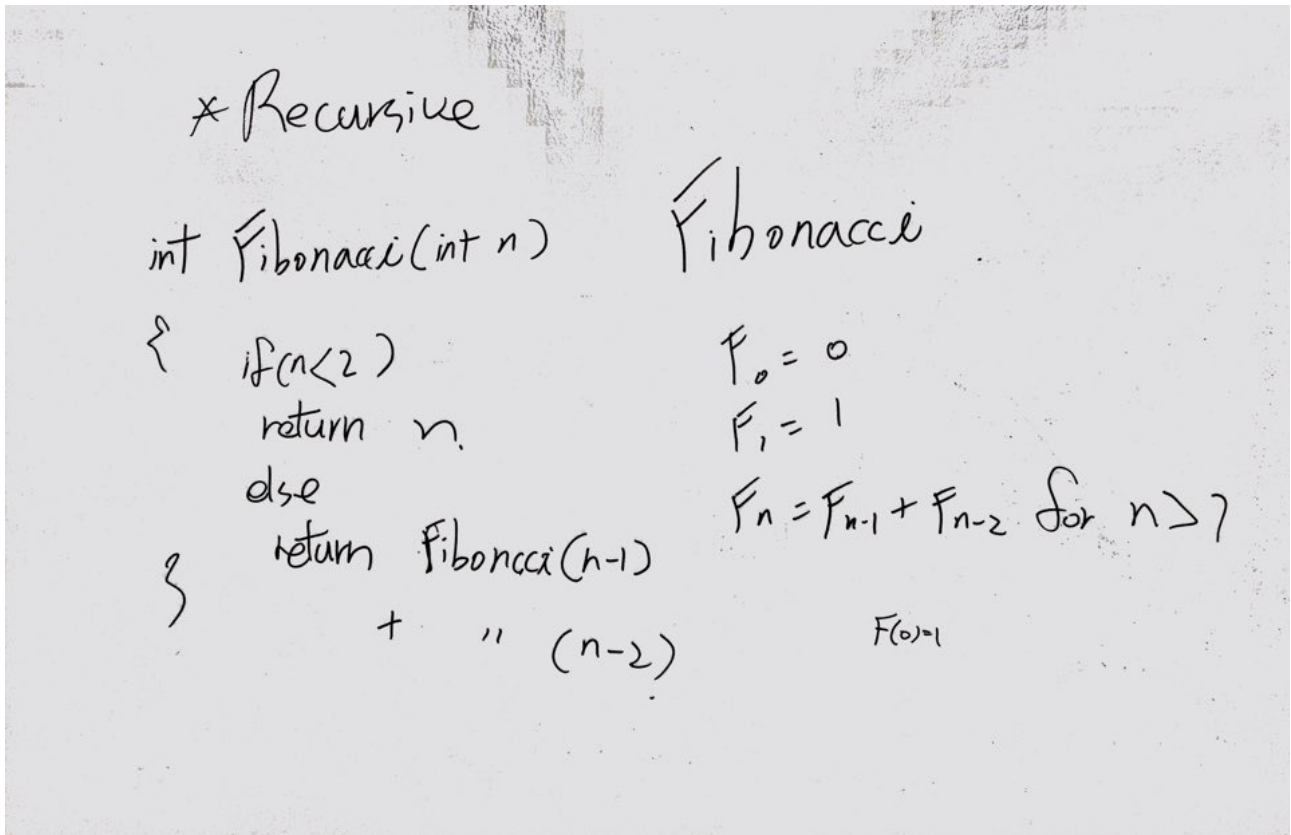 * Recursive
int Fibonacci(int n)
{
if(n<2)
return n.
else
return Fiboncci(n-1)
+ " (n-2)
}
Fibonacci
F₀ = 0
F₁ = 1
Fn = Fn-1 + Fn-2 for n>
F(0)=1